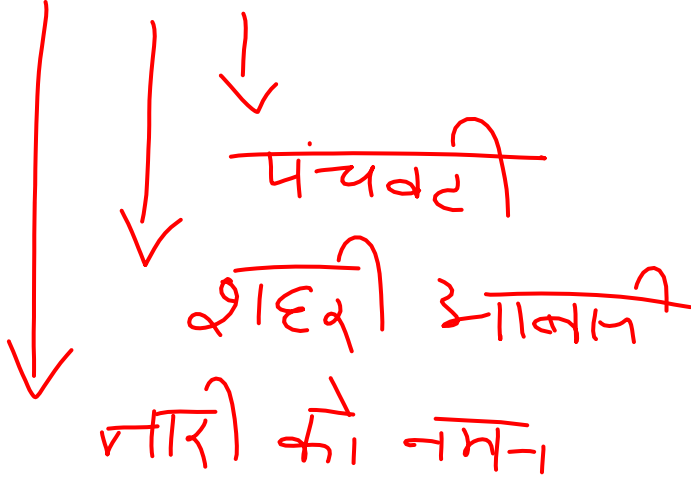 पंचवटी
शहरी
नारी को नमन